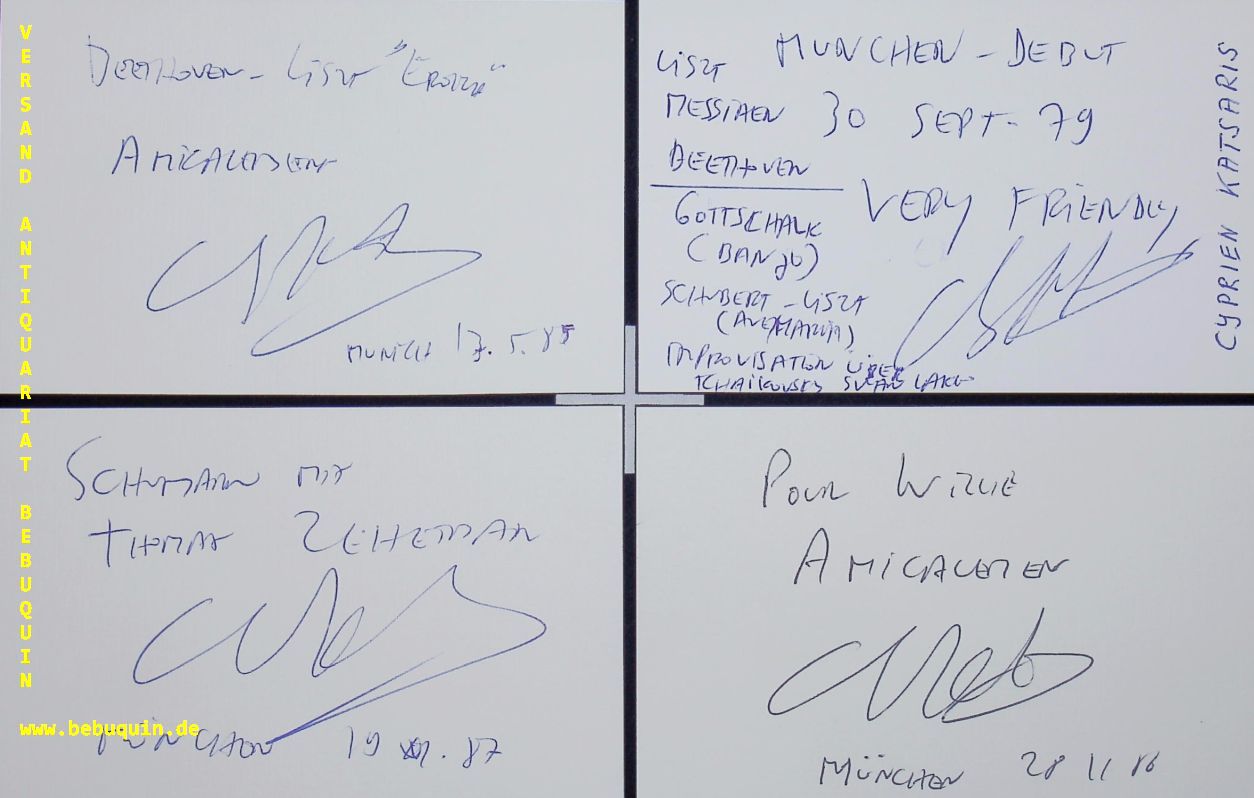 VERSAND ANTIQUARIAT BEBUQUIN
www.bebuquin.de
BEETHOVEN - LISZT "EROICA"
AMICALEMENT
MUNICH 17.5.85
MÜNCHEN - DEBUT
30 SEPT- 79
VERY FRIENDLY
LISZT
MESSIAEN
BEETHOVEN
GOTTSCHALK
(BANJO)
SCHUBERT - LISZT
(AVE MARIA)
IMPROVISATION ÜBER
TCHAIKOVSKY SWAN LAKE
CYPRIEN KATSARIS
SCHUMANN MIT
THOMAS ZEHETMAIR
MÜNCHEN 19 . 87
POUR WILLIE
AMICALEMENT
MÜNCHEN 28 11 86